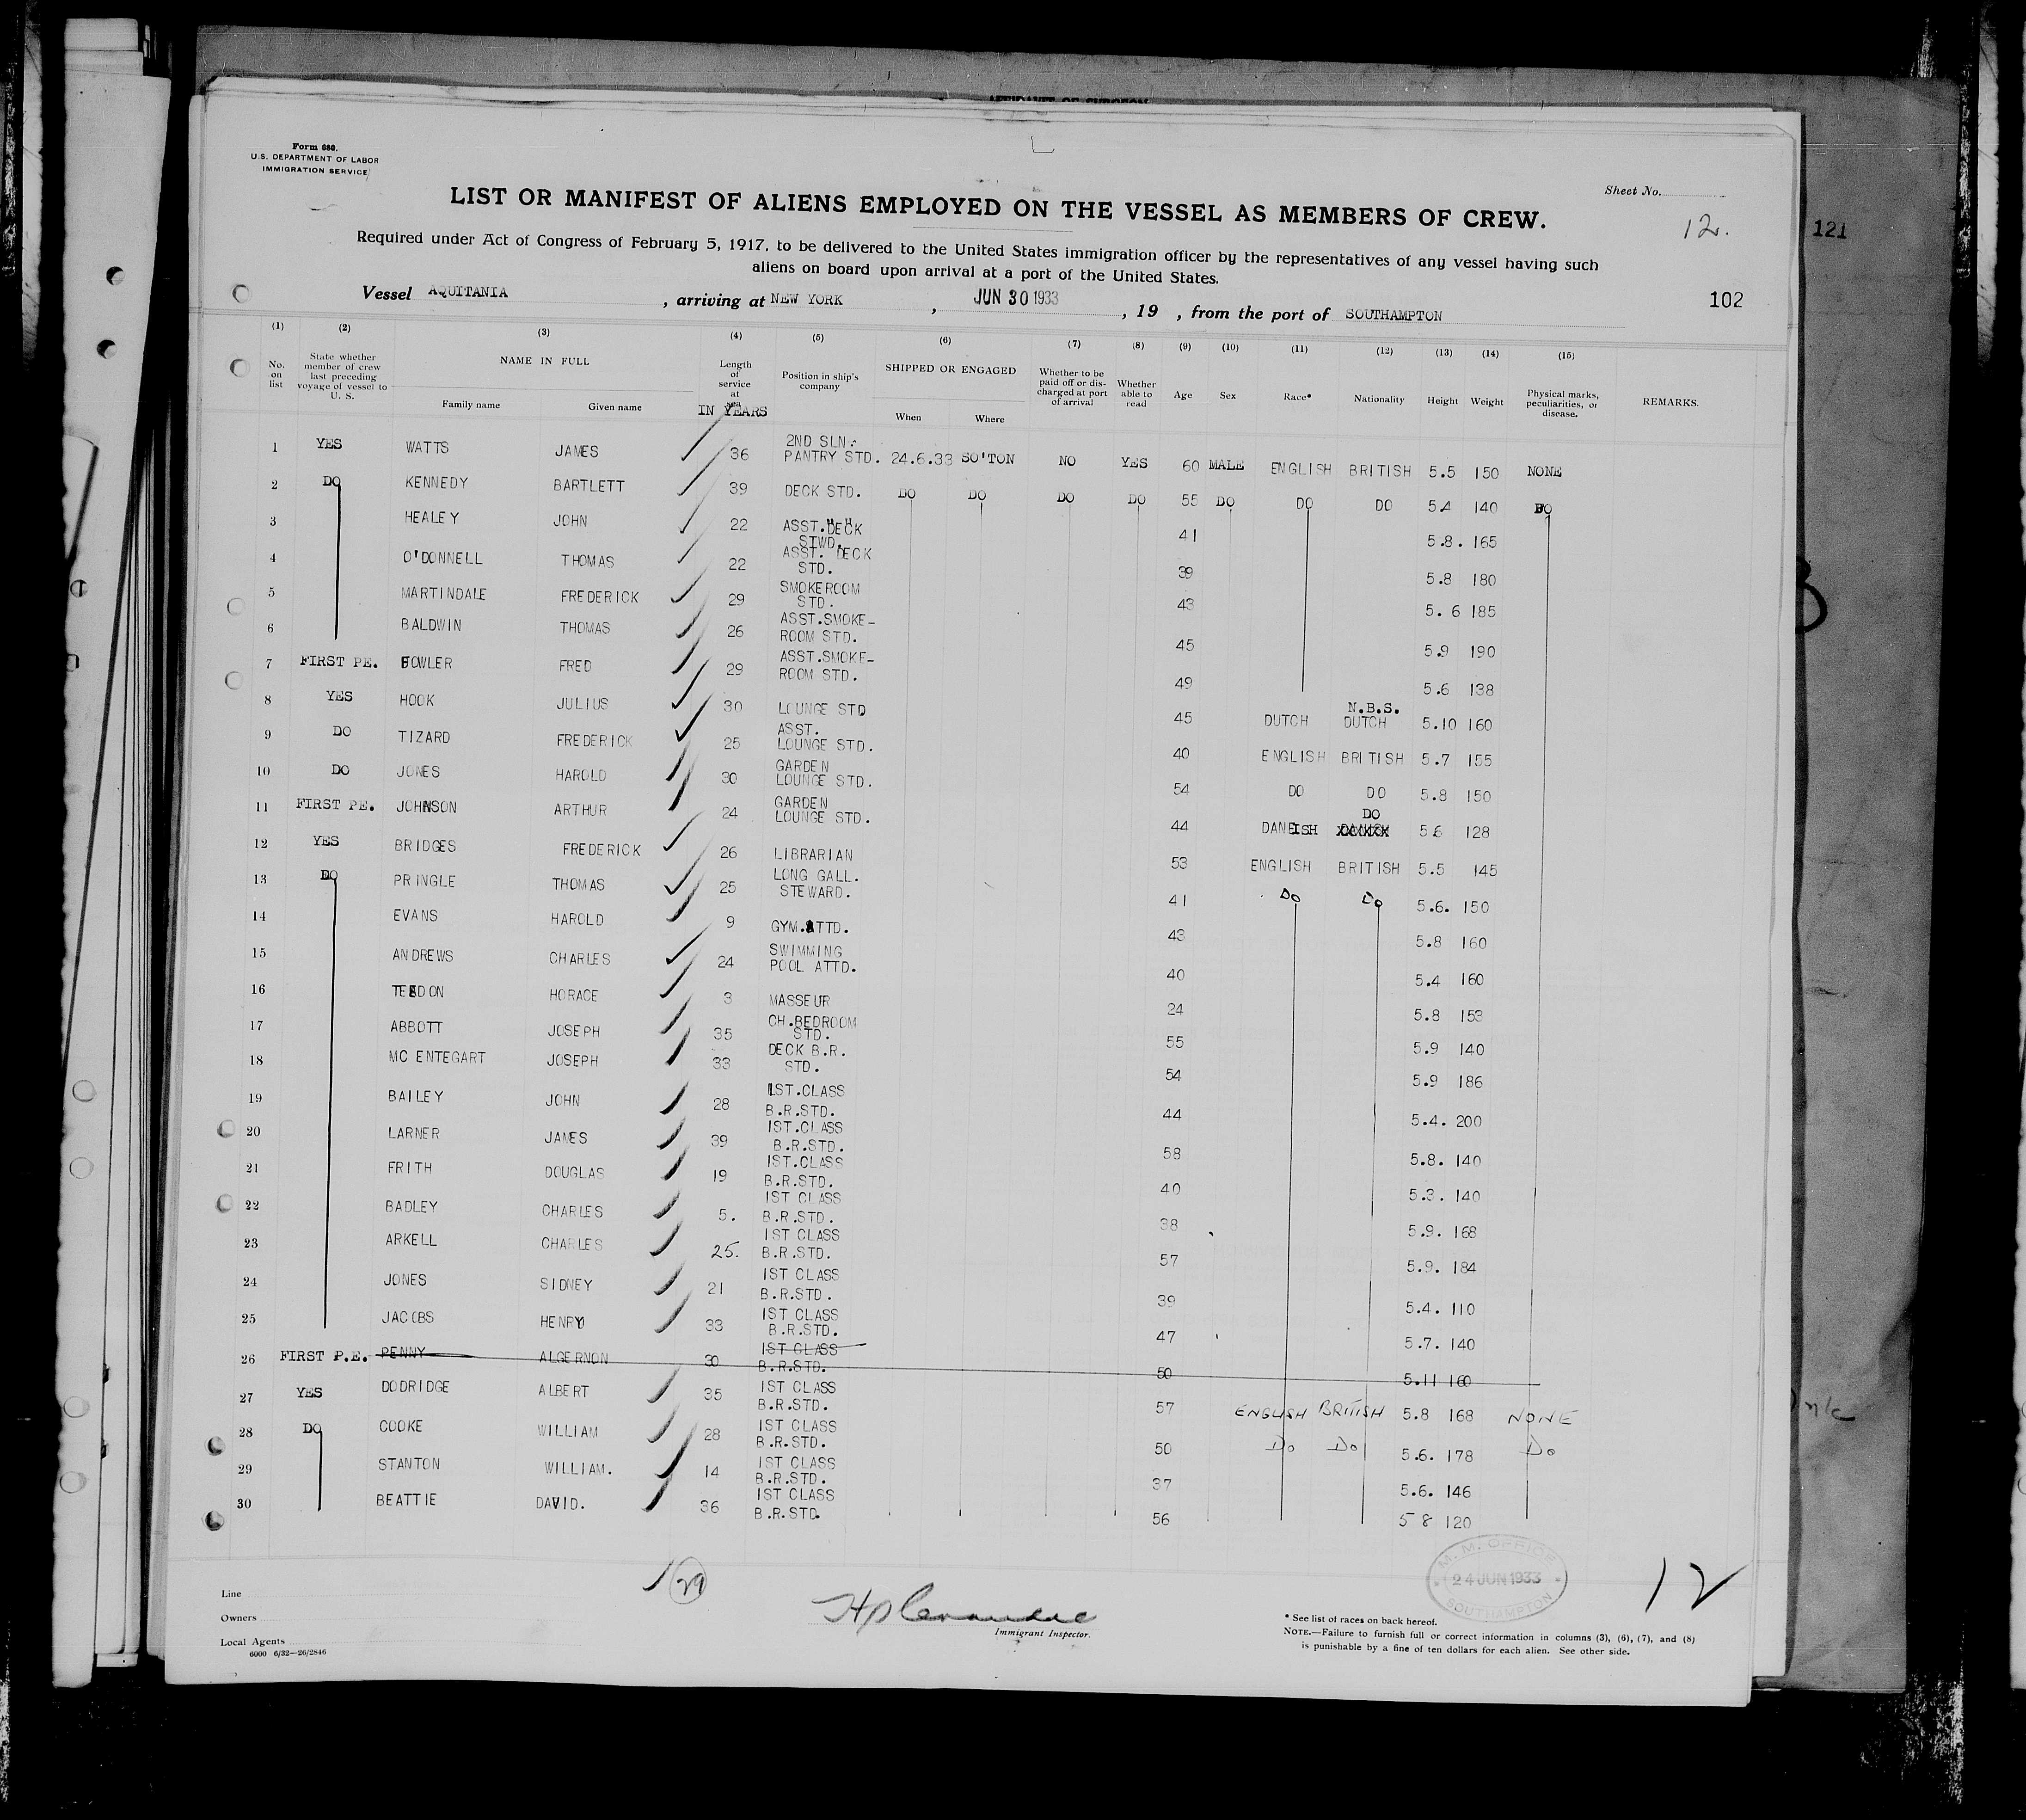 Form 680.
U.S. DEPARTMENT OF LABOR
IMMIGRATION SERVICE
Sheet No.
12.
121
LIST OR MANIFEST OF ALIENS EMPLOYED ON THE VESSEL AS MEMBERS OF CREW.
Required under Act of Congress of February 5, 1917, to be delivered to the United States immigration officer by the representatives of any vessel having such
aliens on board upon arrival at a port of the United States.
Vessel AQUITANIA , arriving at NEW YORK , JUN 30 1933 , 19 , from the port of SOUTHAMPTON
102
(1) (2) (3) (4) (5) (6) (7) (8) (9) (10) (11) (12) (13) (14) (15)
No. on list State whether member of crew last preceding voyage of vessel to U. S. NAME IN FULL Family name Given name Length of service at sea IN YEARS Position in ship's company SHIPPED OR ENGAGED When Where Whether to be paid off or discharged at port of arrival Whether able to read Age Sex Race* Nationality Height Weight Physical marks, peculiarities, or disease. REMARKS.
1 YES WATTS JAMES 36 2ND SLN. PANTRY STD. 24.6.33 SO'TON NO YES 60 MALE ENGLISH BRITISH 5.5 150 NONE
2 DO KENNEDY BARTLETT 39 DECK STD. DO DO DO DO 55 DO DO DO 5.4 140 DO
3 HEALEY JOHN 22 ASST. DECK STWD. 41 5.8. 165
4 O'DONNELL THOMAS 22 ASST. DECK STD. 39 5.8 180
5 MARTINDALE FREDERICK 29 SMOKEROOM STD. 43 5.6 185
6 BALDWIN THOMAS 26 ASST.SMOKE-ROOM STD. 45 5.9 190
7 FIRST PE. FOWLER FRED 29 ASST.SMOKE-ROOM STD. 49 5.6 138
8 YES HOOK JULIUS 30 LOUNGE STD 45 DUTCH N.B.S. DUTCH 5.10 160
9 DO TIZARD FREDERICK 25 ASST. LOUNGE STD. 40 ENGLISH BRITISH 5.7 155
10 DO JONES HAROLD 30 GARDEN LOUNGE STD. 54 DO DO 5.8 150
11 FIRST PE. JOHNSON ARTHUR 24 GARDEN LOUNGE STD. 44 DANEISH DO 5.6 128
12 YES BRIDGES FREDERICK 26 LIBRARIAN 53 ENGLISH BRITISH 5.5 145
13 DO PRINGLE THOMAS 25 LONG GALL. STEWARD. 41 Do Do 5.6. 150
14 EVANS HAROLD 9 GYM.ATTD. 43 5.8 160
15 ANDREWS CHARLES 24 SWIMMING POOL ATTD. 40 5.4 160
16 HORACE 3 MASSEUR 24 5.8 153
17 ABBOTT JOSEPH 35 CH.BEDROOM STD. 55 5.9 140
18 MC ENTEGART JOSEPH 33 DECK B.R. STD. 54 5.9 186
19 BAILEY JOHN 28 1ST.CLASS B.R.STD. 44 5.4. 200
20 LARNER JAMES 39 IST.CLASS B.R.STD. 58 5.8. 140
21 FRITH DOUGLAS 19 IST.CLASS B.R.STD. 40 5.3. 140
22 BADLEY CHARLES 5. IST CLASS B.R.STD. 38 5.9. 168
23 ARKELL CHARLES 25. IST CLASS B.R.STD. 57 5.9. 184
24 JONES SIDNEY 21 IST CLASS B.R.STD. 39 5.4. 110
25 JACOBS HENRY 33 IST CLASS B.R.STD. 47 5.7. 140
26 FIRST P.E. PENNY ALGERNON 30 IST CLASS B.R.STD. 50 5.11 160
27 YES DODRIDGE ALBERT 35 IST CLASS B.R.STD. 57 ENGLISH BRITISH 5.8 168 NONE
28 DO COOKE WILLIAM 28 IST CLASS B.R.STD. 50 Do Do 5.6. 178 Do
29 STANTON WILLIAM. 14 IST CLASS B.R.STD. 37 5.6. 146
30 BEATTIE DAVID. 36 IST CLASS B.R.STD. 56 5 8 120
29
M. M. OFFICE
24 JUN 1933
SOUTHAMPTON
12
Line
Owners
Local Agents
6000 6/32—26/2846
Immigrant Inspector.
* See list of races on back hereof.
NOTE.—Failure to furnish full or correct information in columns (3), (6), (7), and (8)
is punishable by a fine of ten dollars for each alien. See other side.